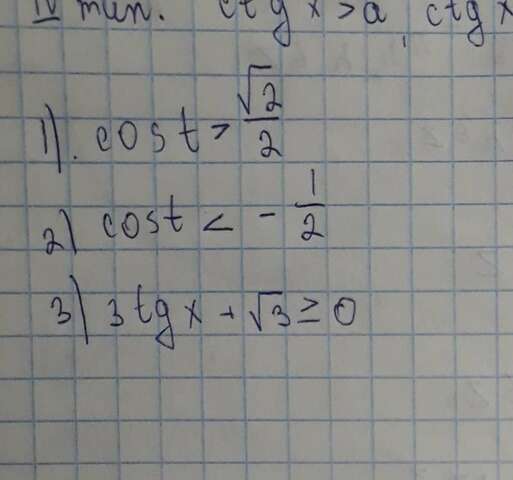 IV тип. ctg x > a, ctg x
1). cos t > √2/2
2) cos t < - 1/2
3) 3 tg x + √3 ≥ 0